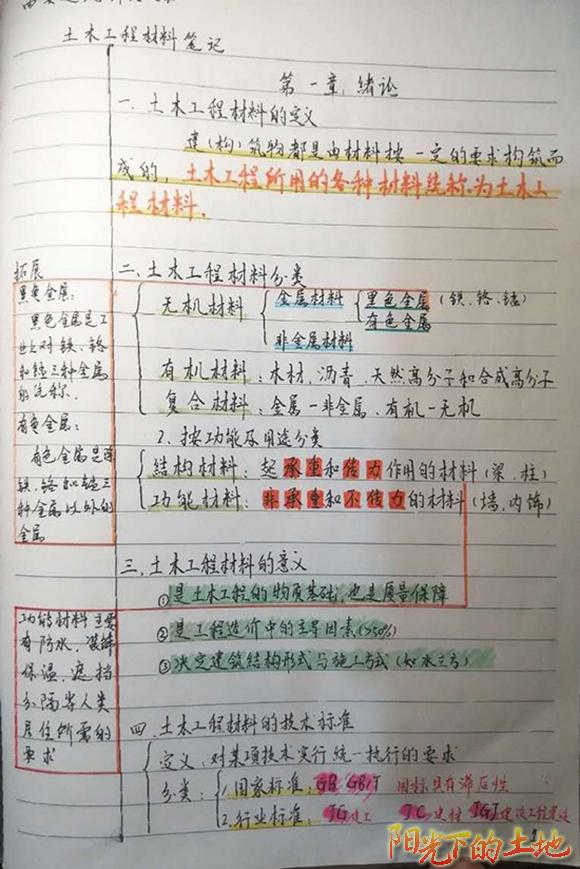 土木工程材料笔记
第一章：绪论
一、土木工程材料的定义
建(构)筑物都是由材料按一定的要求构筑而
成的，土木工程所用的各种材料统称为土木工
程材料.
拓展
黑色金属：
黑色金属是工
业上对铁、铬
和锰三种金属
的统称.
有色金属：
有色金属是除
铁、铬和锰三
种金属以外的
金属
二、土木工程材料分类
无机材料
金属材料
黑色金属（铁、铬、锰）
有色金属
非金属材料
有机材料：木材、沥青、天然高分子和合成高分子
复合材料：金属－非金属、有机－无机
2、按功能及用途分类
结构材料：起承重和传力作用的材料（梁、柱）
功能材料：非承重和不传力的材料（墙、内饰）
三、土木工程材料的意义
①是土木工程的物质基础，也是质量保障
②是工程造价中的主导因素(>50%)
③决定建筑结构形式与施工方式（如水立方）
功能材料主要
有防水、装饰
保温、遮挡
分隔等人类
居住所需的
要求
四、土木工程材料的技术标准
定义：对某项技术实行统一执行的要求
分类：
1.国家标准：GB GB/T 国标具有滞后性
2.行业标准：JG建工 JC建材 JGJ建设工程建设
1
阳光下的土地